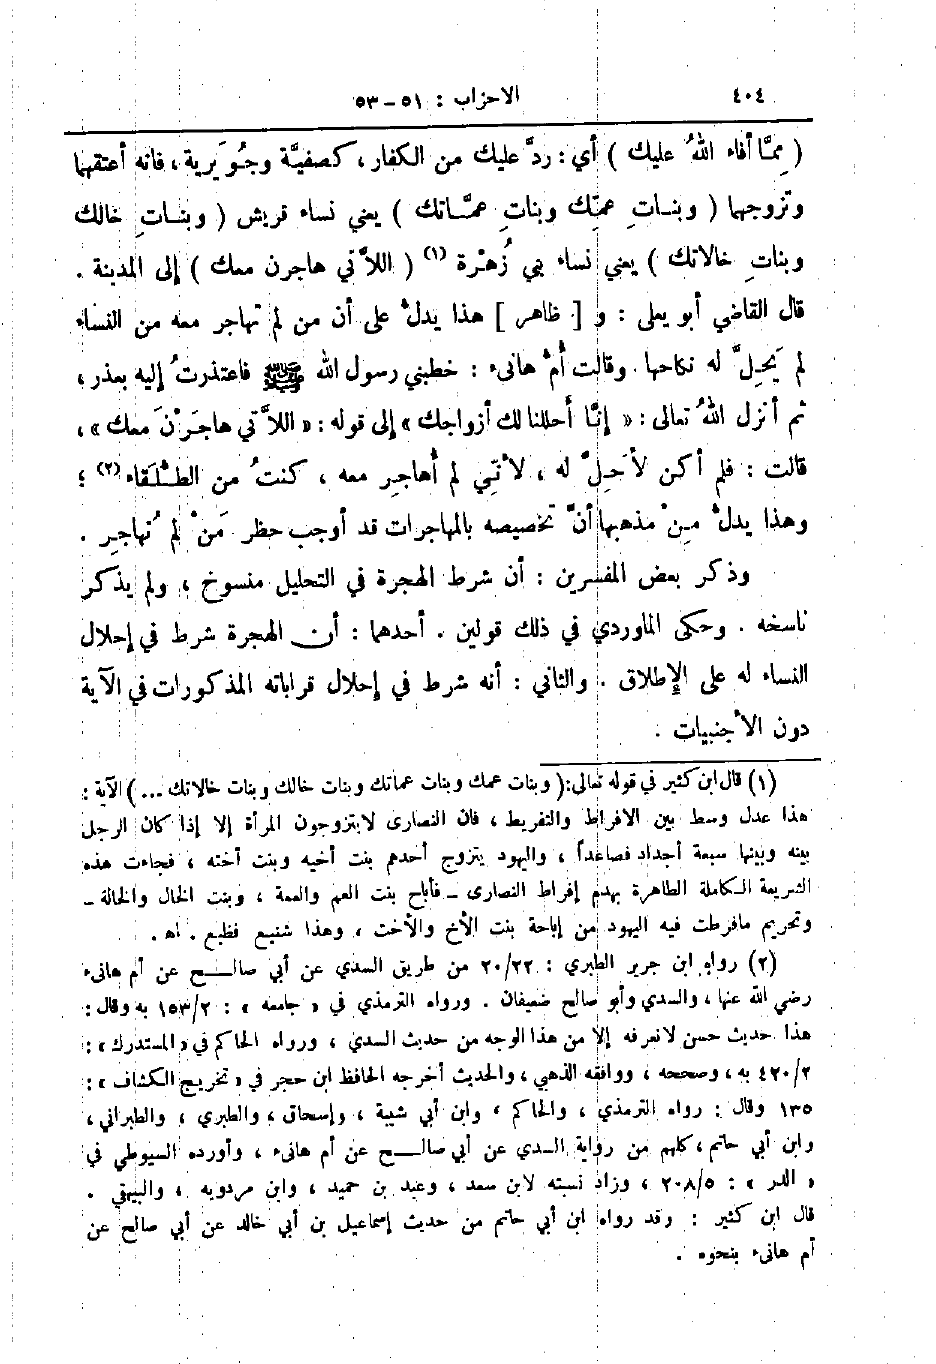 ٤٠٤ الاحزاب : ٥١ – ٥٣
( مِمَّا أفاء اللهُ عليك ) أي : ردَّ عليك من الكفار، كصفيَّة وجُوَيرية، فانه أعتقهما
وتزوجهما ( وبنـاتِ عمِّك وبناتِ عمَّـاتك ) يعني نساء قريش ( وبنـاتِ خالك
وبناتِ خالاتك ) يعني نساء بني زُهْرة (١) ( اللاَّتي هاجرن معك ) إلى المدينة .
قال القاضي أبو يعلى : و [ ظاهر ] هذا يدلُّ على أن من لم تهاجر معه من النساء
لم يَحِلَّ له نكاحها . وقالت أُمُّ هانىء : خطبني رسول الله ﷺ فاعتذرتُ إليه بعذر ،
ثم أنزل اللهُ تعالى : « إنَّا أحللنا لك أزواجك » إلى قوله : « اللاَّتي هاجَرْنَ معك » ،
قالت : فلم أكن لأَحِلَّ له ، لأنّي لم أُهاجِر معه ، كنتُ من الطُّلَقاء (٢) ؛
وهذا يدلُّ مِنْ مذهبها أنَّ تخصيصه بالمهاجرات قد أوجب حظر مَنْ لم تُهاجِر .
وذكر بعض المفسرين : أن شرط الهجرة في التحليل منسوخ ، ولم يذكر
ناسخه . وحكى الماوردي في ذلك قولين . أحدهما : أن الهجرة شرط في إحلال
النساء له على الإطلاق . والثاني : أنه شرط في إحلال قراباته المذكورات في الآية
دون الأجنبيات .
(١) قال ابن كثير في قوله تعالى : ( وبنات عمك وبنات عماتك وبنات خالك وبنات خالاتك ... ) الآية :
هذا عدل وسط بين الافراط والتفريط ، فان النصارى لايتزوجون المرأة إلا إذا كان الرجل
بينه وبينها سبعة أجداد فصاعداً ، واليهود يتزوج أحدهم بنت أخيه وبنت أخته ، فجاءت هذه
الشريعة الكاملة الطاهرة بهدم إفراط النصارى – فأباح بنت العم والعمة ، وبنت الخال والخالة –
وتحريم مافرطت فيه اليهود من إباحة بنت الأخ والأخت ، وهذا شنيع فظيع . اهـ .
(٢) رواه ابن جرير الطبري : ٢٠/٢٢ من طريق السدي عن أبي صالـــح عن أم هانىء
رضي الله عنها ، والسدي وأبو صالح ضعيفان . ورواه الترمذي في « جامعه » : ١٥٣/٢ به وقال :
هذا حديث حسن لانعرفه إلا من هذا الوجه من حديث السدي ، ورواه الحاكم في « المستدرك » :
٤٢٠/٢ به ، وصححه ، ووافقه الذهبي ، والحديث أخرجه الحافظ ابن حجر في « تخريج الكشاف » :
١٣٥ وقال : رواه الترمذي ، والحاكم ، وابن أبي شيبة ، وإسحاق ، والطبري ، والطبراني ،
وابن أبي حاتم ، كلهم من رواية السدي عن أبي صالـــح عن أم هانىء ، وأورده السيوطي في
« الدر » : ٢٠٨/٥ ، وزاد نسبته لابن سعد ، وعبد بن حميد ، وابن مردويه ، والبيهقي .
قال ابن كثير : وقد رواه ابن أبي حاتم من حديث إسماعيل بن أبي خالد عن أبي صالح عن
أم هانىء بنحوه .